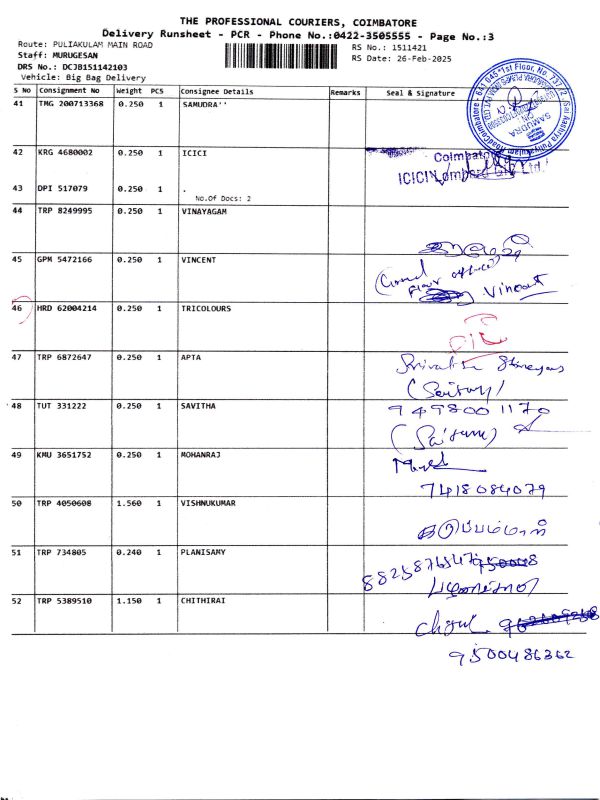 THE PROFESSIONAL COURIERS, COIMBATORE
Delivery Runsheet - PCR - Phone No.:0422-3505555 - Page No.:3
Route: PULIAKULAM MAIN ROAD
Staff: MURUGESAN
DRS No.: DCJB151142103
Vehicle: Big Bag Delivery
RS No.: 1511421
RS Date: 26-Feb-2025
S No Consignment No Weight PCS Consignee Details Remarks Seal & Signature
41 TMG 200713368 0.250 1 SAMUDRA''
SAMUDRA
42 KRG 4680002 0.250 1 ICICI
Coimbato
ICICI Lombard GIC Ltd.
43 DPI 517079 0.250 1 .
No.Of Docs: 2
44 TRP 8249995 0.250 1 VINAYAGAM
45 GPM 5472166 0.250 1 VINCENT
Floor office
Vincent
46 HRD 62004214 0.250 1 TRICOLOURS
47 TRP 6872647 0.250 1 APTA
48 TUT 331222 0.250 1 SAVITHA
9498001170
(Sairam)
49 KMU 3651752 0.250 1 MOHANRAJ
7418084079
50 TRP 4050608 1.560 1 VISHNUKUMAR
கருப்பம்மாள்
51 TRP 734805 0.240 1 PLANISAMY
52 TRP 5389510 1.150 1 CHITHIRAI
9500486362